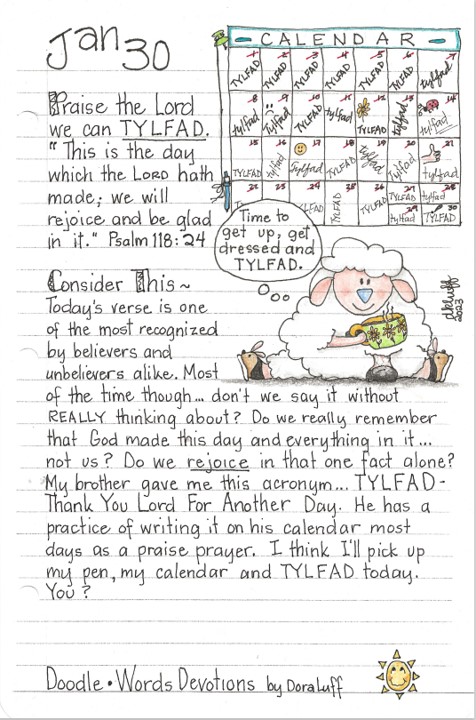 Jan 30
CALENDAR
1 2 3 4 5 6 7
TYLFAD TYLFAD TYLFAD TYLFAD TYLFAD TYLFAD tylfad
8 9 10 11 12 13 14
tylfad tylfad TYLFAD tylfad TYLFAD tylfad tylfad
15 16 17 18 19 20 21
TYLFAD tylfad Tylfad TYLFAD tylfad tylfad tylfad
22 23 24 25 26 27 28
TYLFAD TYLFAD tylfad
29 30
tylfad TYLFAD
Praise the Lord
we can TYLFAD.
"This is the day
which the LORD hath
made; we will
rejoice and be glad
in it." Psalm 118:24
Time to
get up, get
dressed and
TYLFAD.
dkluff
2023
Consider This~
Today's verse is one
of the most recognized
by believers and
unbelievers alike. Most
of the time though... don't we say it without
REALLY thinking about? Do we really remember
that God made this day and everything in it...
not us? Do we rejoice in that one fact alone?
My brother gave me this acronym... TYLFAD-
Thank You Lord For Another Day. He has a
practice of writing it on his calendar most
days as a praise prayer. I think I'll pick up
my pen, my calendar and TYLFAD today.
You?
Doodle•Words Devotions by Dora Luff